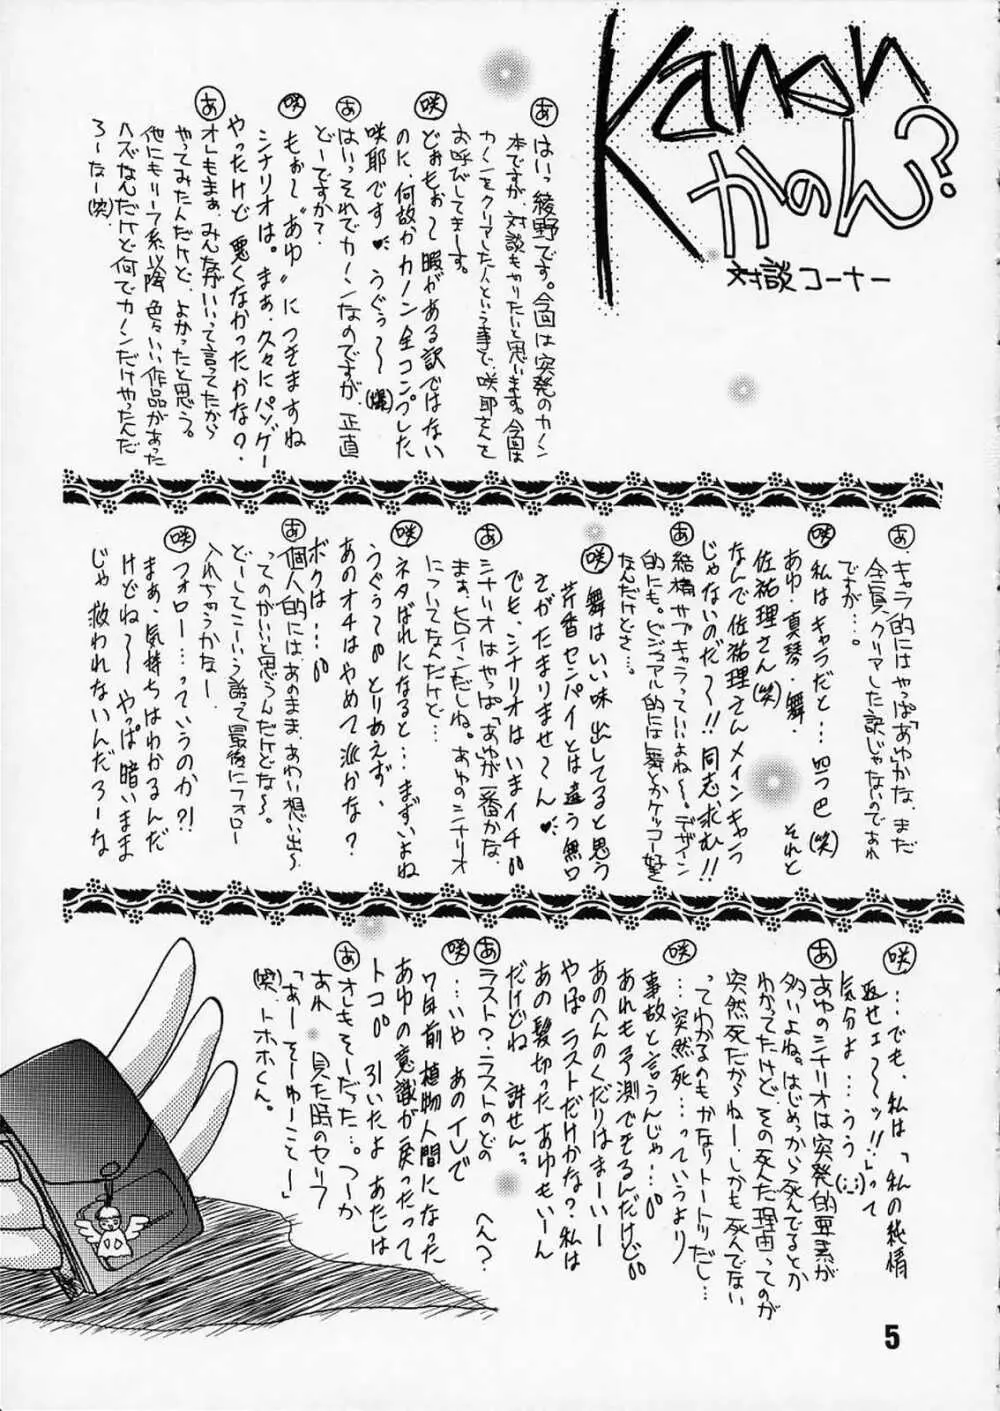 Kanon
かのん?
対談コーナー
あ はいっ綾野です。今回は突発のカノン
本ですが、対談もやりたいと思います。今回は
カノンをクリアした人という事で、咲耶さんを
お呼びしてまーす。
咲 どぉもぉ〜暇がある訳ではない
のに、何故かカノン全コンプした
咲耶です♥うぐぅ〜〜(爆)
あ はいっそれでカノンなのですが、正直
どーですか?
咲 もぉ〜“あゆ”につきますね
シナリオは。まぁ、久々にパソゲー
やったけど悪くなかったかな?
あ オレもまぁ、みんながいいって言ってたから
やってみたんだけど、よかったと思う。
他にもリーフ系以降色々いい作品があった
ハズなんだけど何でカノンだけやったんだ
ろーなー(笑)
あ・キャラ的にはやっぱ「あゆ」かな、まだ
全員クリアした訳じゃないのであれ
ですが…。
咲 私はキャラだと…四つ巴(笑)
あゆ・真琴・舞・それと
佐祐理さん(笑)
なんで佐祐理さんメインキャラ
じゃないのだ〜!!同志求む!!
あ 結構サブキャラっていいよね〜。デザイン
的にも。ビジュアル的には舞とかケッコー好き
なんだけどさ…。
咲 舞はいい味出してると思う
芹香センパイとは違う無口
さがたまりませ〜ん♥
でも、シナリオはいまイチ
あ シナリオはやっぱ「あゆ」が一番かな、
まぁ、ヒロインだしね。あゆのシナリオ
についてなんだけど…
咲 ネタばれになると…まずいよね
うぐぅ〜 とりあえず、
あのオチはやめて欲かな?
ボクは…
あ 個人的には、あのまま、あわい想い出〜
ってのがいいと思うんだけどな〜。
どーしてこーいう話って最後にフォロー
入れちゃうかなー
咲 フォロー…っていうのか?!
まぁ、気持ちはわかるんだ
けどね〜〜 やっぱ暗いまま
じゃ救われないんだろーな
咲 …でも、私は「私の純情
返せェ〜〜ッ!!」って
気分よ…うう(;;)
あ あゆのシナリオは突発的要素が
多いよね。はじめっから死んでるとか
わかってたけど、その死んだ理由ってのが
突然死だからねー、しかも死んでない
ってわかるのもかなりトートツだし…
咲 …突然死…っていうより
事故と言うんじゃ…
あれも予測できるんだけど
あのへんのくだりはまーいー
やっぱ ラストだけかな? 私は
あの髪切ったあゆもいーん
だけどね 許せん
あ ラスト?ラストのどのへん?
咲 …いや あのイレで
7年前植物人間になった
あゆの意識が戻ったって
トコ 引いたよ あたしは
あ オレもそーだった…。つーか
あれ 見た時のセリフ
「あーそーゆーことー」
(笑)、トホホくん。
5